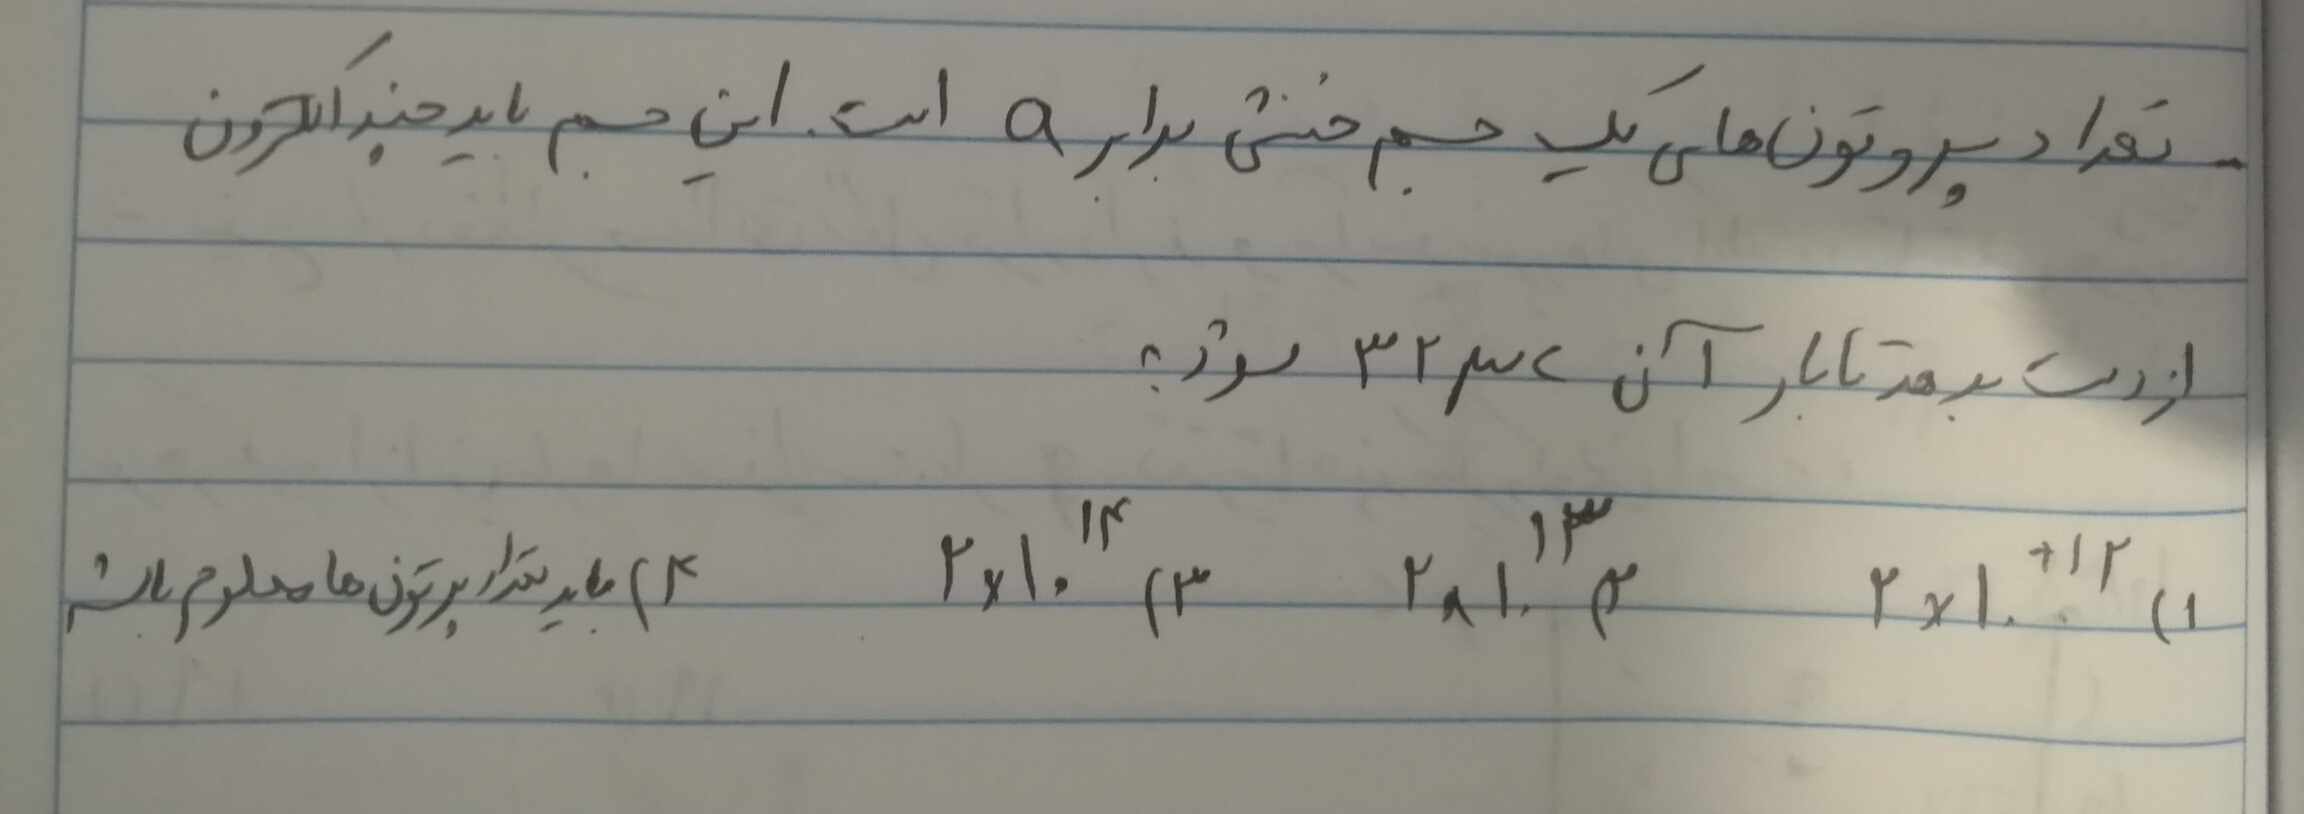 - تعداد پروتون‌های یک جسم خنثی برابر a است. این جسم باید چند الکترون
از دست بدهد تا بار آن ۳۲ μc شود؟
۱) ۲×۱۰^+۱۲ ۲) ۲×۱۰^۱۳ ۳) ۲×۱۰^۱۴ ۴) باید تعداد پرتون‌ها معلوم باشد